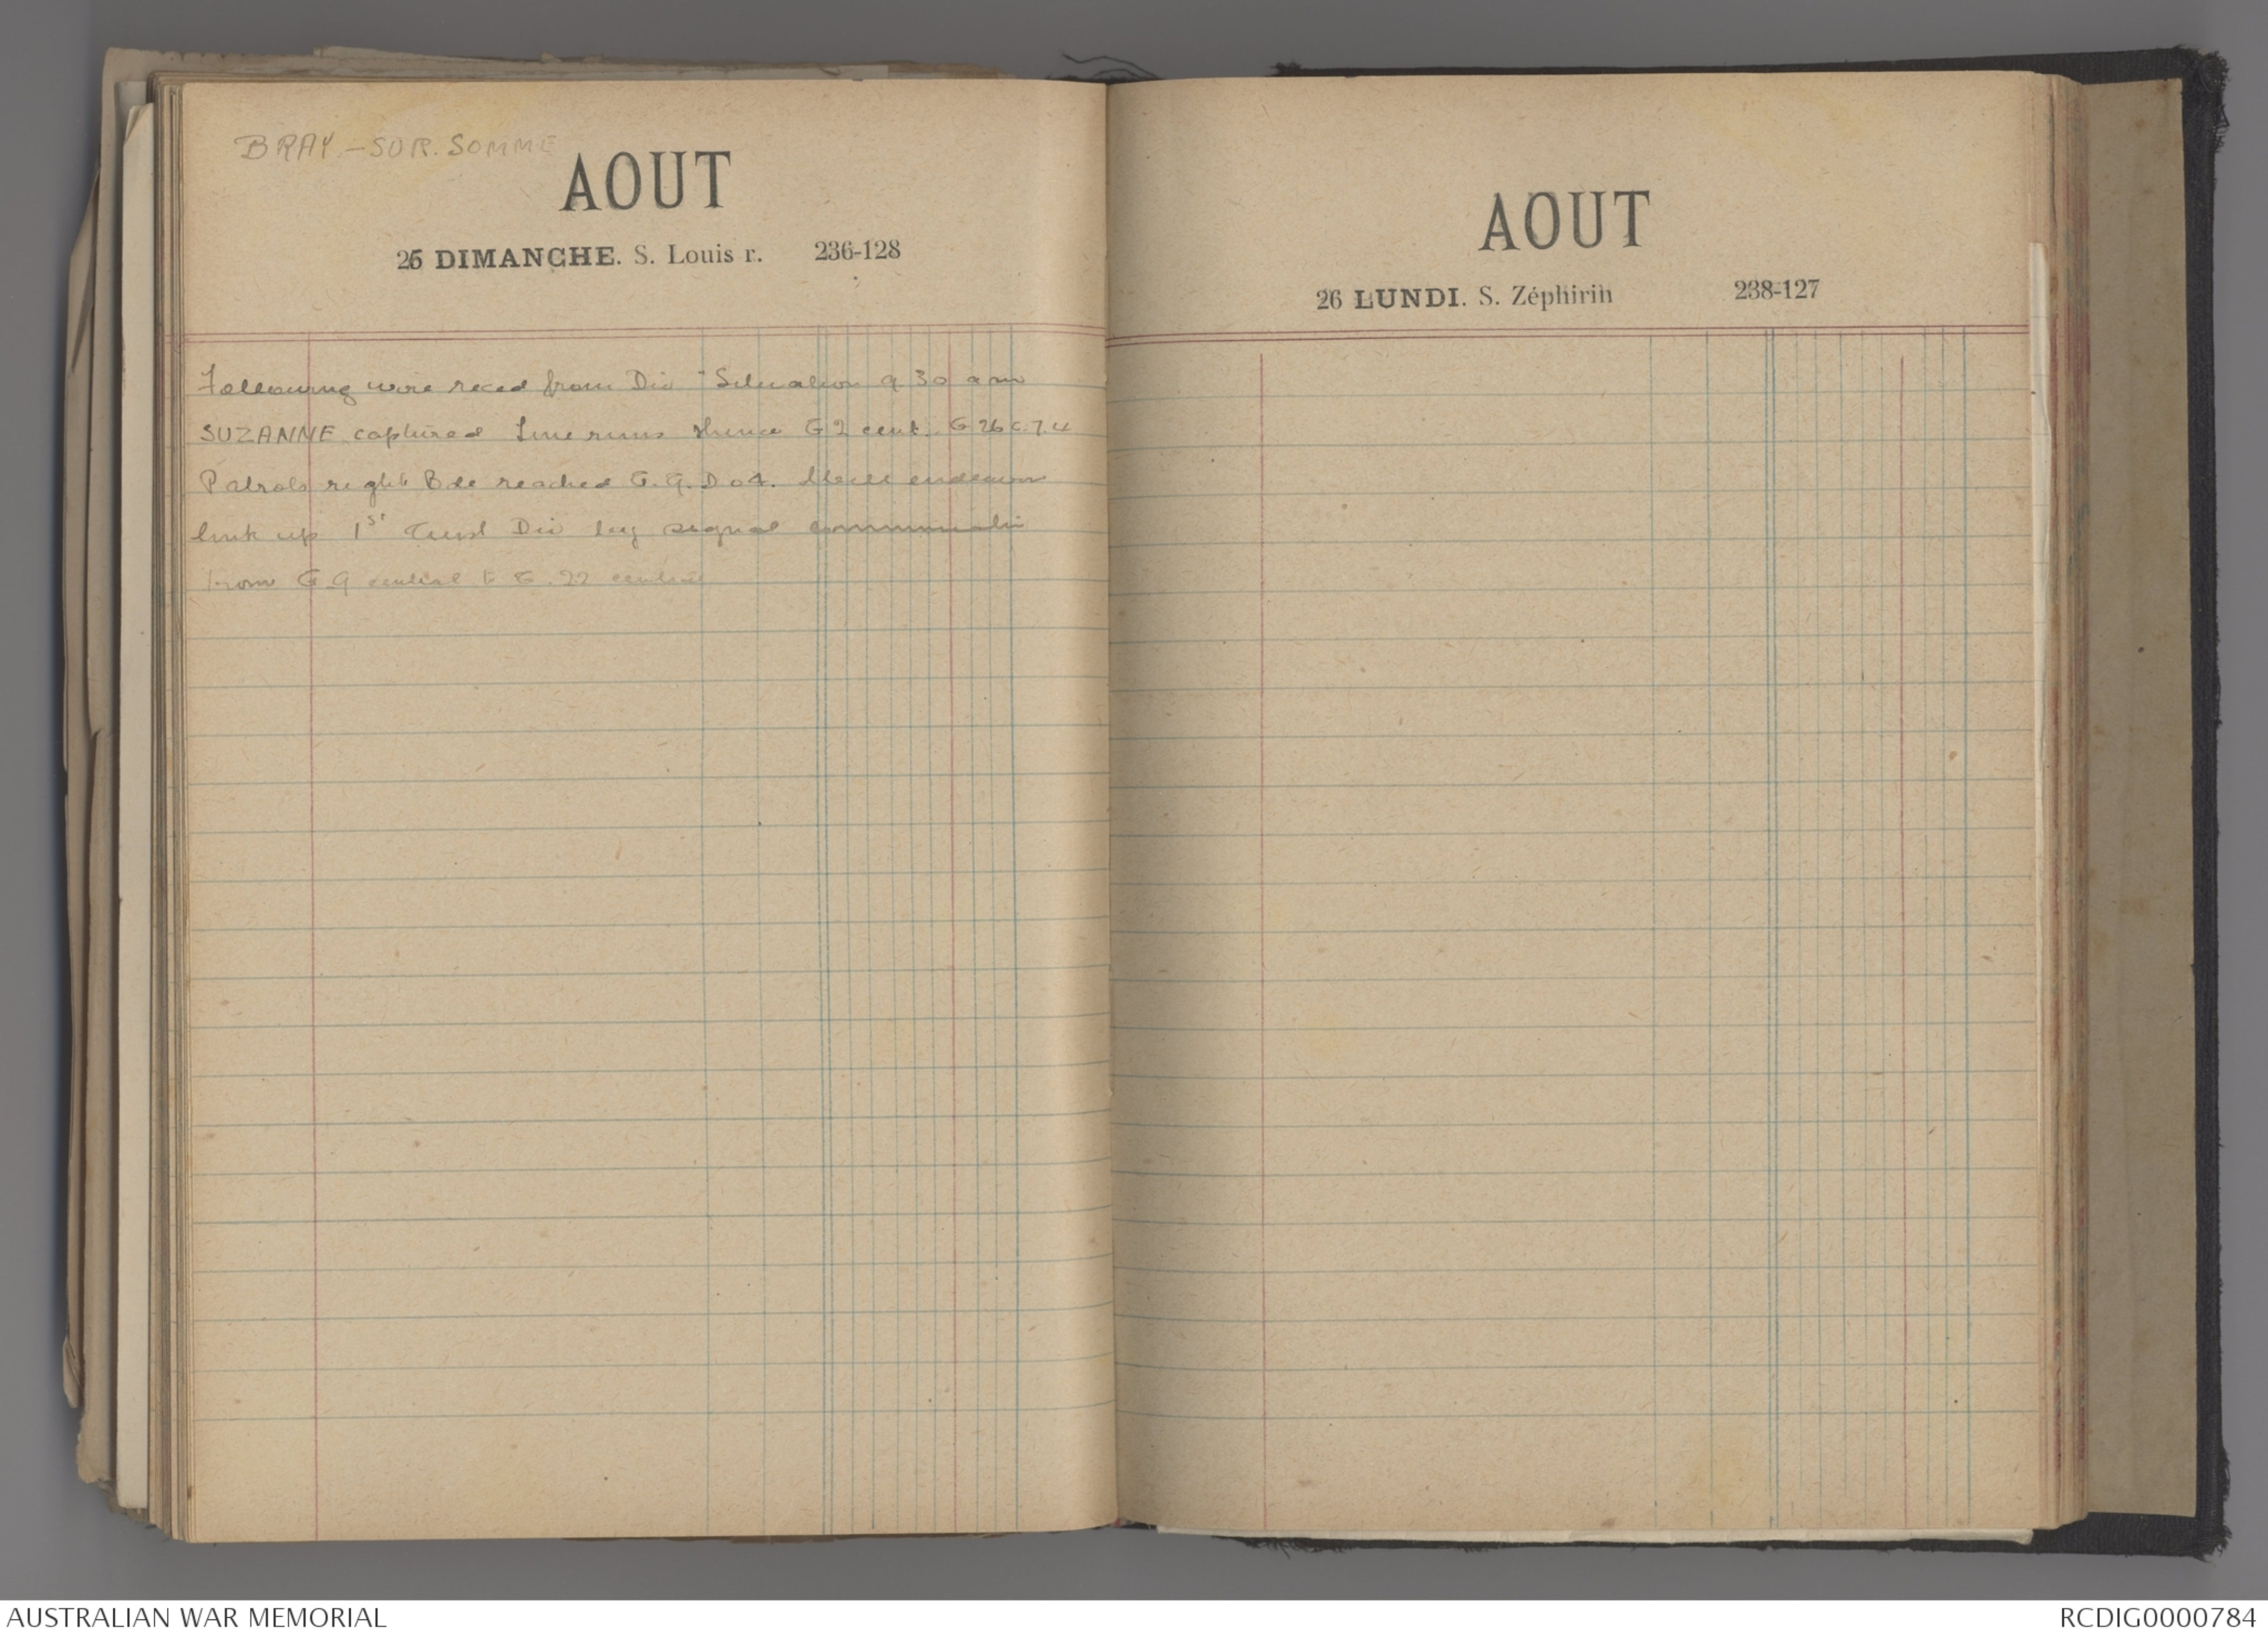 BRAY-SUR-SOMME
AOUT
25 DIMANCHE. S. Louis r. 236-128
Following wire reced from Div "Situation 9 30 am
SUZANNE captured Line runs thence G 2 cent. G 26 c.7.4
Patrols right Bde reached G.9.D 04. Will endeavour
link up 1st Aust Div by signal
from G 9 central to G.22 central
AOUT
26 LUNDI. S. Zéphirin 238-127
AUSTRALIAN WAR MEMORIAL
RCDIG0000784